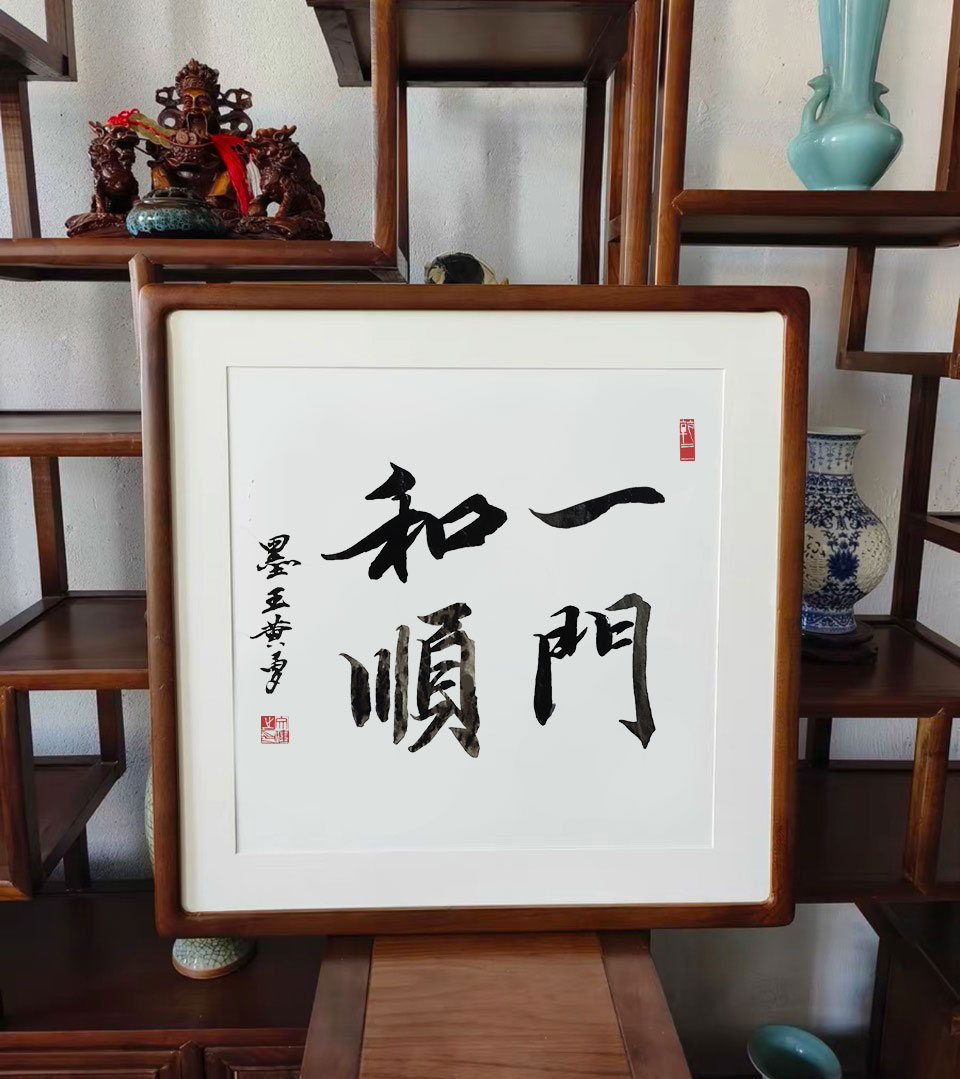 一門
和順
墨王黄勇